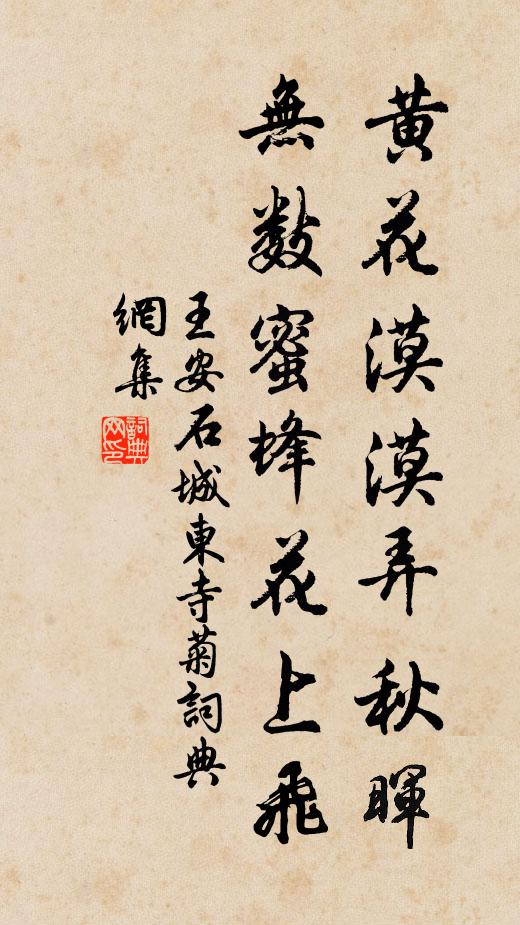 黄花漠漠弄秋暉
無數蜜蜂花上飛
王安石城東寺菊詞典
網集
詞典
网印